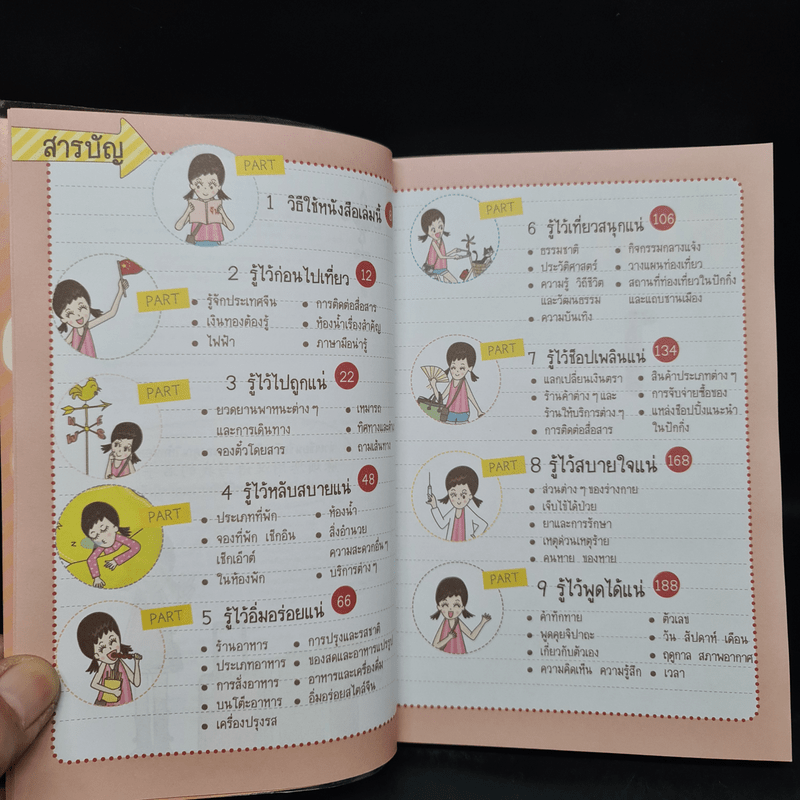 สารบัญ
PART
1 วิธีใช้หนังสือเล่มนี้
PART
2 รู้ไว้ก่อนไปเที่ยว 12
• รู้จักประเทศจีน
• เงินทองต้องรู้
• ไฟฟ้า
• การติดต่อสื่อสาร
• ห้องน้ำเรื่องสำคัญ
• ภาษามือน่ารู้
PART
3 รู้ไว้ไปถูกแน่ 22
• ยวดยานพาหนะต่างๆ
และการเดินทาง
• จองตั๋วโดยสาร
• เหมารถ
• ทิศทางและ
• ถามเส้นทาง
PART
4 รู้ไว้หลับสบายแน่ 48
• ประเภทที่พัก
• จองที่พัก เช็กอิน
เช็กเอ๊าต์
• ในห้องพัก
• ห้องน้ำ
• สิ่งอำนวย
ความสะดวกอื่นๆ
• บริการต่างๆ
PART
5 รู้ไว้อิ่มอร่อยแน่ 66
• ร้านอาหาร
• ประเภทอาหาร
• การสั่งอาหาร
• บนโต๊ะอาหาร
• เครื่องปรุงรส
• การปรุงและรสชาติ
• ของสดและอาหารแปรรูป
• อาหารและเครื่องดื่ม
• อิ่มอร่อยสไตล์จีน
PART
6 รู้ไว้เที่ยวสนุกแน่ 106
• ธรรมชาติ
• ประวัติศาสตร์
• ความรู้ วิถีชีวิต
และวัฒนธรรม
• ความบันเทิง
• กิจกรรมกลางแจ้ง
• วางแผนท่องเที่ยว
• สถานที่ท่องเที่ยวในปักกิ่ง
และแถบชานเมือง
PART
7 รู้ไว้ช็อปเพลินแน่ 134
• แลกเปลี่ยนเงินตรา
• ร้านค้าต่างๆ และ
ร้านให้บริการต่างๆ
• การติดต่อสื่อสาร
• สินค้าประเภทต่างๆ
• การจับจ่ายซื้อของ
• แหล่งช็อปปิ้งแนะนำ
ในปักกิ่ง
PART
8 รู้ไว้สบายใจแน่ 168
• ส่วนต่างๆ ของร่างกาย
• เจ็บไข้ได้ป่วย
• ยาและการรักษา
• เหตุด่วนเหตุร้าย
• คนหาย ของหาย
PART
9 รู้ไว้พูดได้แน่ 188
• คำทักทาย
• พูดคุยจิปาถะ
• เกี่ยวกับตัวเอง
• ความคิดเห็น ความรู้สึก
• ตัวเลข
• วัน สัปดาห์ เดือน
• ฤดูกาล สภาพอากาศ
• เวลา